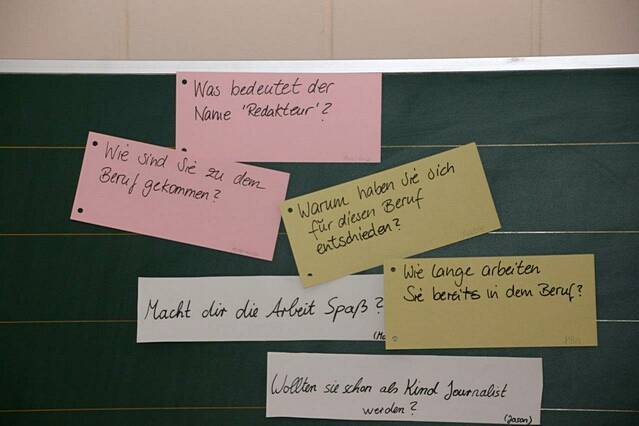 Was bedeutet der
Name 'Redakteur'?
Wie sind Sie zu dem
Beruf gekommen?
Warum haben Sie sich
für diesen Beruf
entschieden?
Wie lange arbeiten
Sie bereits in dem Beruf?
Macht dir die Arbeit Spaß?
Wollten sie schon als Kind Journalist
werden?
(Jason)